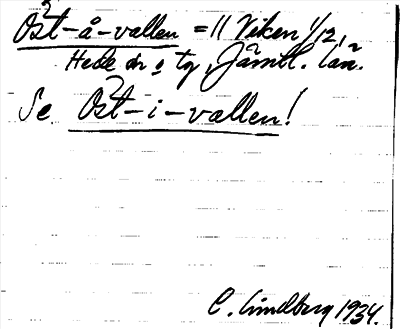 Öst-å-vallen = 11 Viken 1/12,
Hede sn o tg, Jämtl. län.
Se Öst-i-vallen!
C. Lindberg 1934.